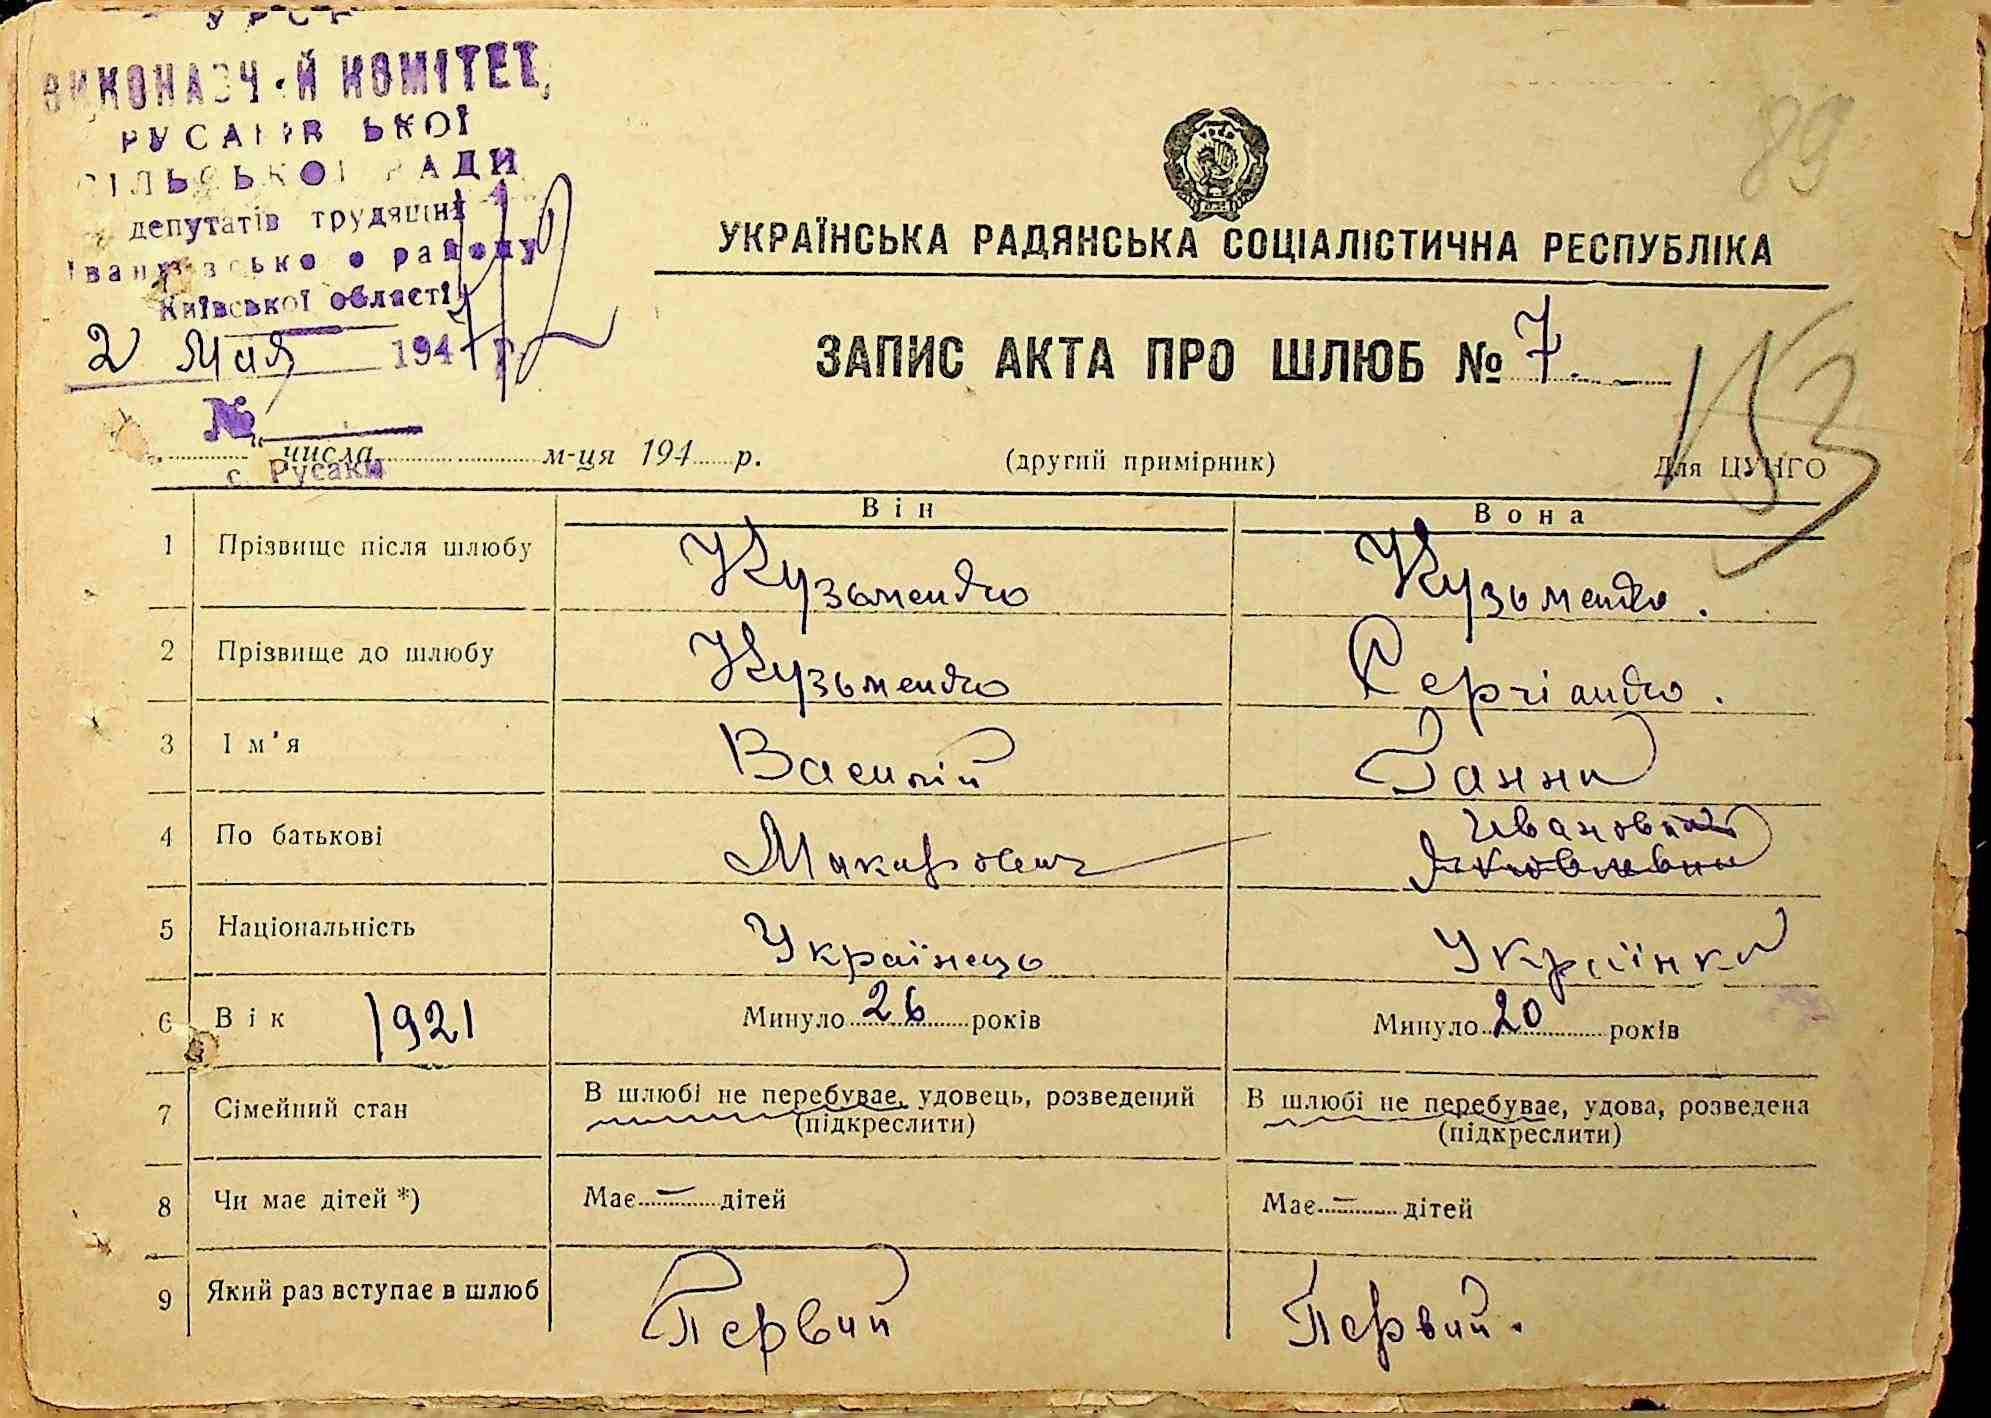 УРСР
ВИКОНАВЧИЙ КОМІТЕТ
РУСАКІВСЬКОЇ
СІЛЬСЬКОЇ РАДИ
депутатів трудящих
Іванківського району
Київської області
2 Мая 1947 р.
№
с. Русаки
89
УКРАЇНСЬКА РАДЯНСЬКА СОЦІАЛІСТИЧНА РЕСПУБЛІКА
ЗАПИС АКТА ПРО ШЛЮБ № 7.
153
„ числа м-ця 194 р. (другий примірник) Для ЦУНГО
Він Вона
1 Прізвище після шлюбу Кузьменко Кузьменко.
2 Прізвище до шлюбу Кузьменко
3 Ім'я Василій Ганна
Ивановна
4 По батькові Макарович Яковлевна
5 Національність Українець Українка
6 Вік 1921 Минуло 26 років Минуло 20 років
7 Сімейний стан В шлюбі не перебуває, удовець, розведений В шлюбі не перебуває, удова, розведена
(підкреслити) (підкреслити)
8 Чи має дітей *) Має — дітей Має — дітей
9 Який раз вступає в шлюб Первий Первий.